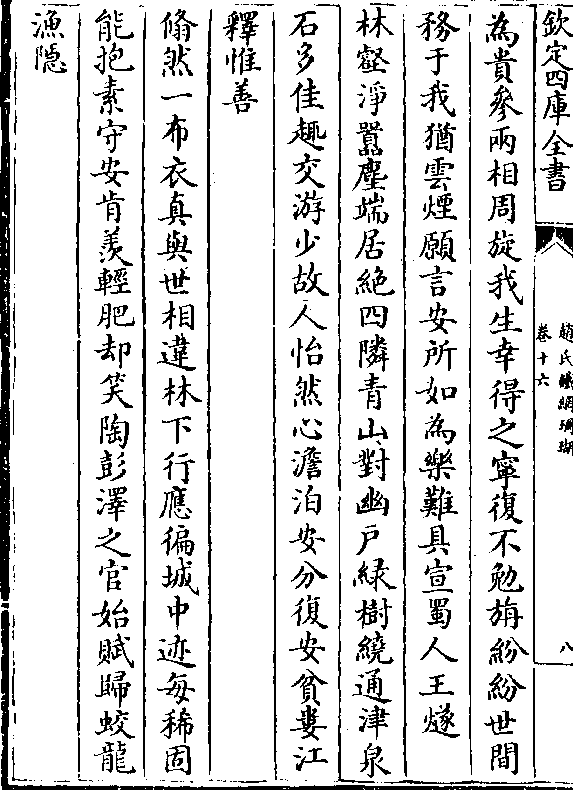 欽定四庫全書
趙氏鐵網珊瑚
卷十六
八
為貴參兩相周旋我生幸得之寧復不勉旃紛紛世間
務于我猶雲煙願言安所如為樂難具宣蜀人王燧
林壑淨囂塵端居絶四隣青山對幽戶緑樹繞通津泉
石多佳趣交游少故人怡然心澹泊安分復安貧婁江
釋惟善
翛然一布衣真與世相違林下行應徧城中迹每稀固
能抱素守安肯羨輕肥却笑陶彭澤之官始賦歸蛟龍
漁隠